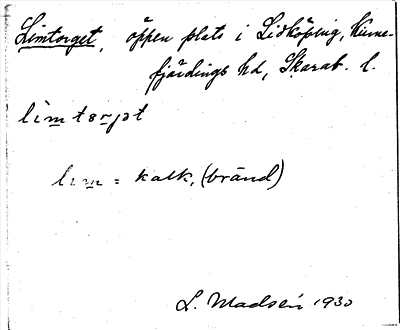 Limtorget, öppen plats i Lidköping, Kinne-
fjärdings hd, Skarab. l.
limtorjət
lim = kalk, (bränd)
L. Madsén 1930